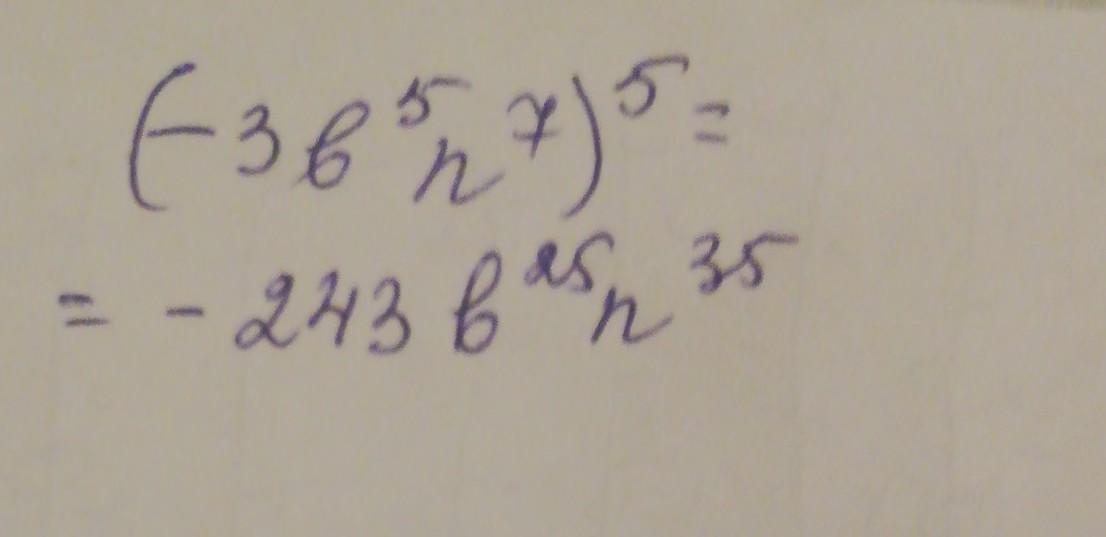 (-3b⁵n⁷)⁵=
= -243b²⁵n³⁵